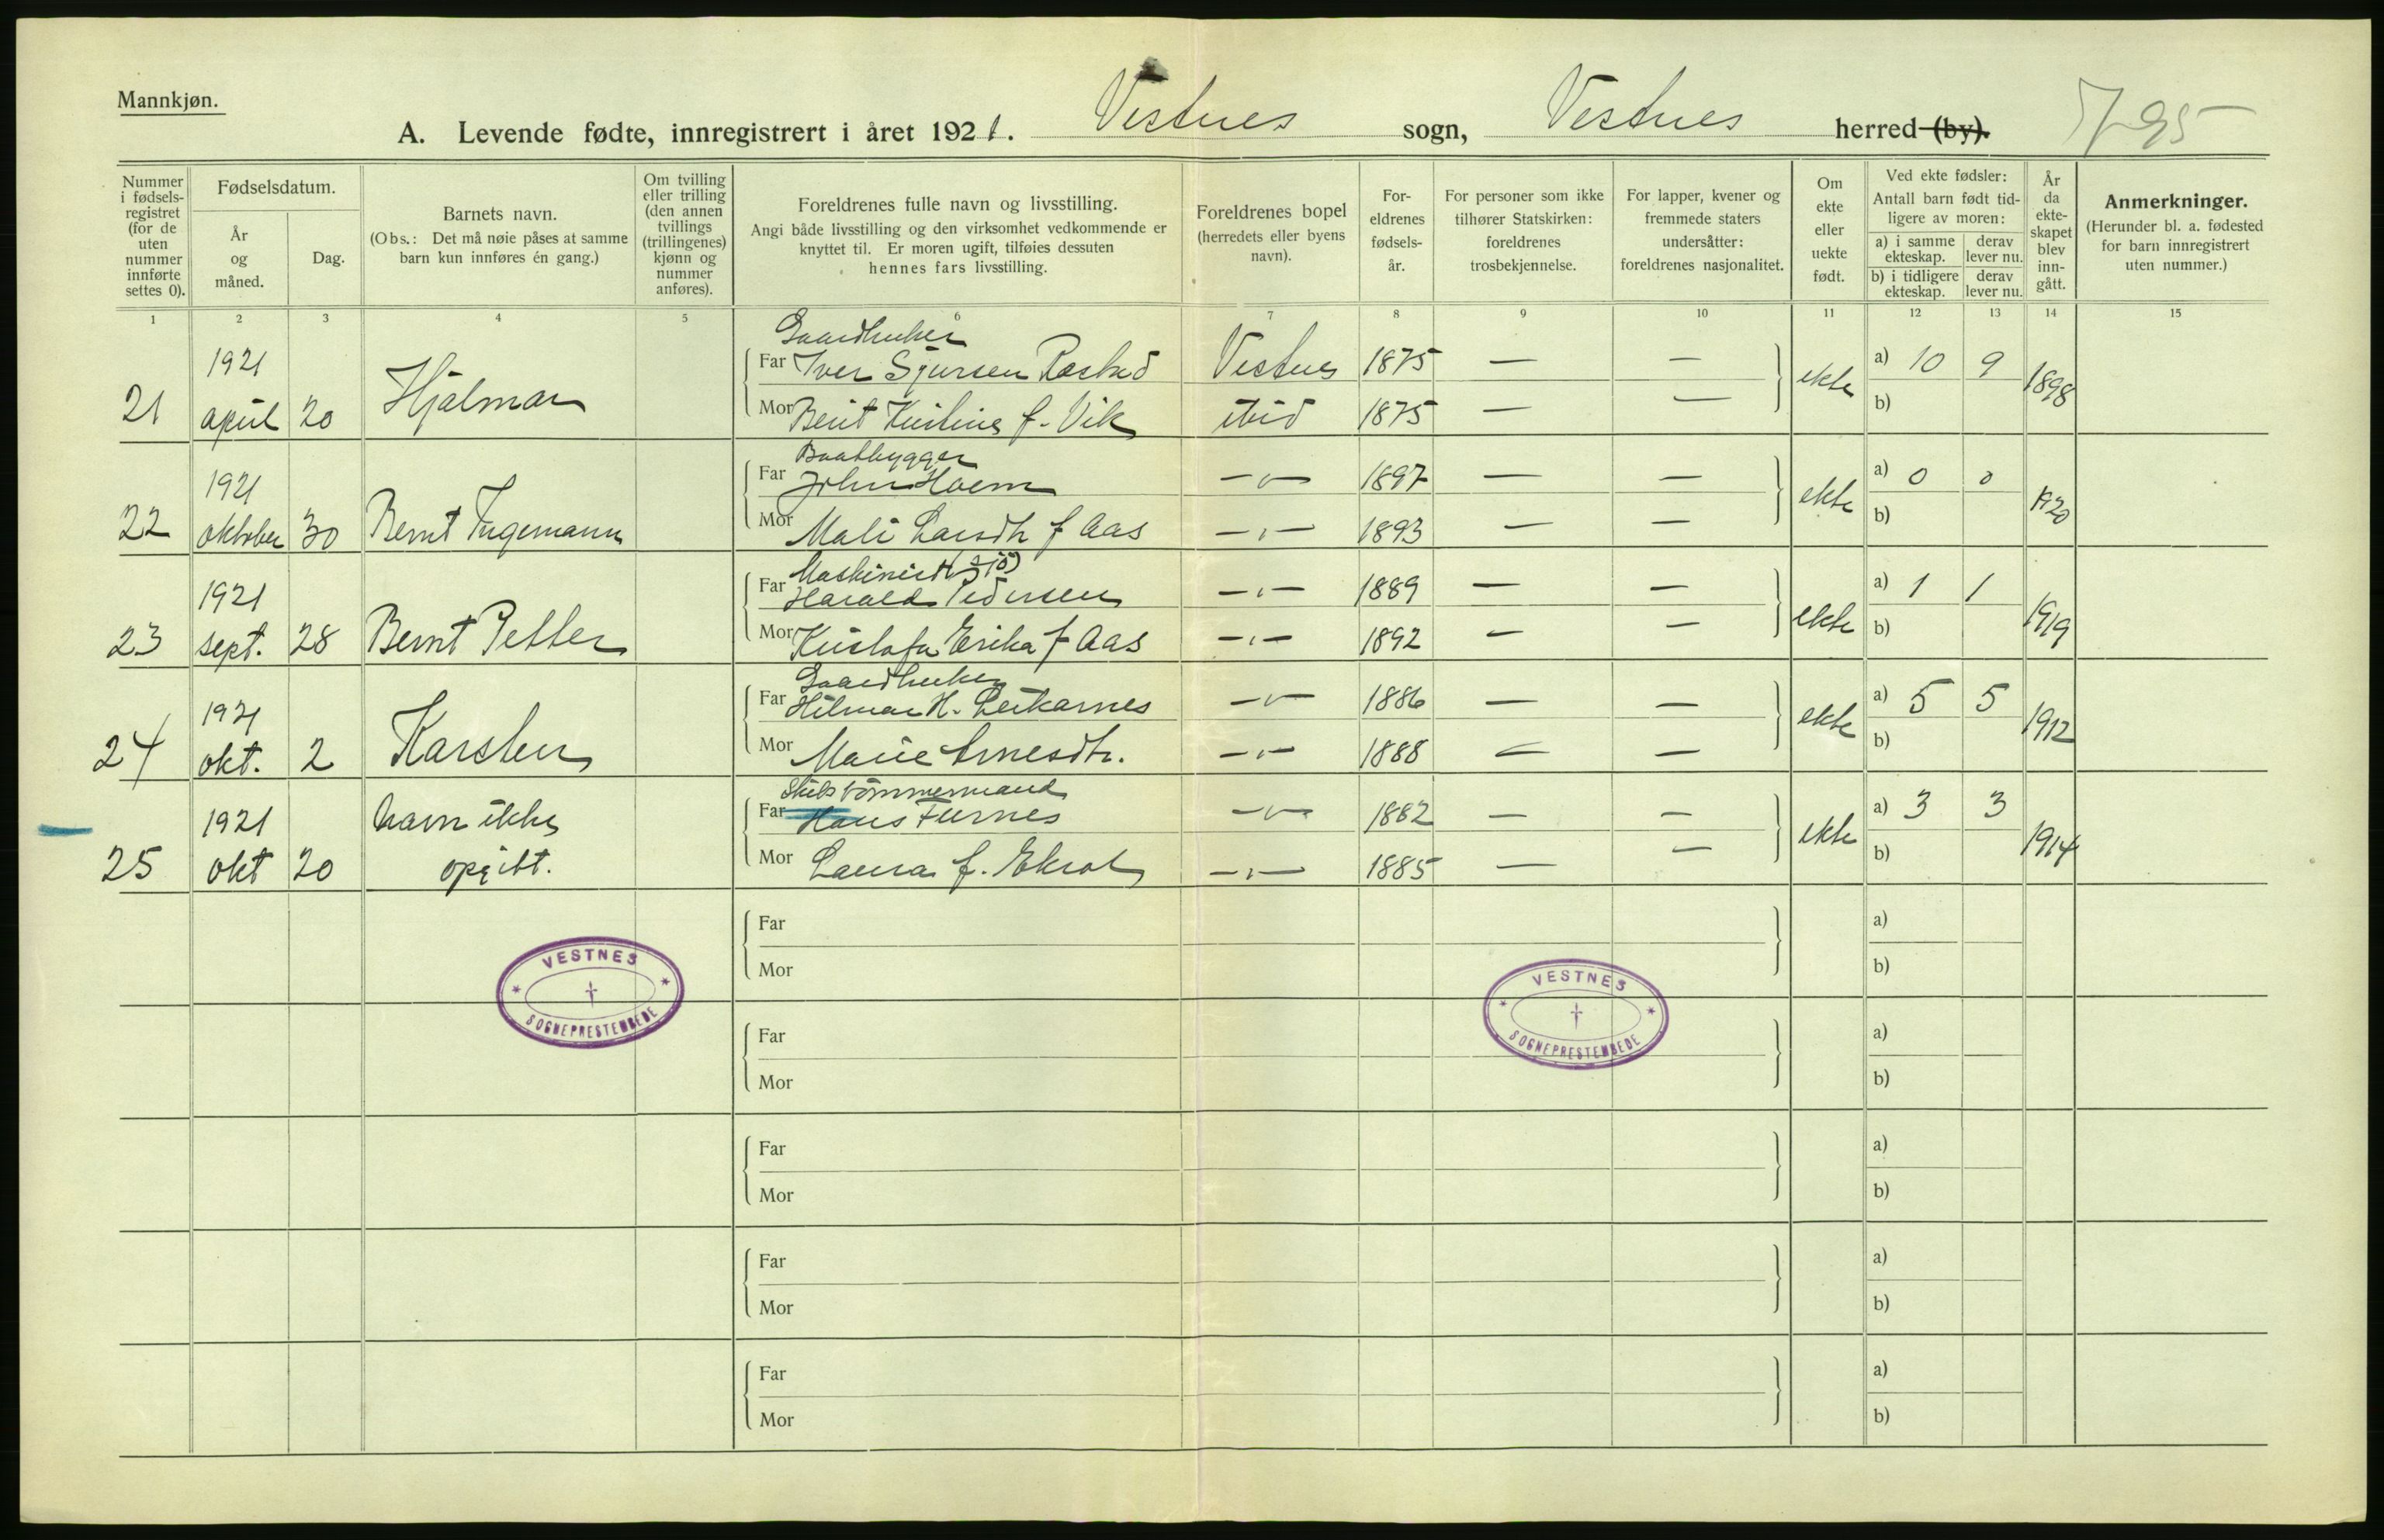 Mannkjøn.
A. Levende fødte, innregistrert i året 1921. Vestnes sogn, Vestnes herred (by).
Nummer i fødsels-registret (for de uten nummer innførte settes 0).
Fødselsdatum.
År og måned.
Dag.
Barnets navn.
(Obs.: Det må nøie påses at samme barn kun innføres én gang.)
Om tvilling eller trilling (den annen tvillings (trillingenes) kjønn og nummer anføres).
Foreldrenes fulle navn og livsstilling.
Angi både livsstilling og den virksomhet vedkommende er knyttet til. Er moren ugift, tilføies dessuten hennes fars livsstilling.
Foreldrenes bopel (herredets eller byens navn).
For-eldrenes fødsels-år.
For personer som ikke tilhører Statskirken: foreldrenes trosbekjennelse.
For lapper, kvener og fremmede staters undersåtter: foreldrenes nasjonalitet.
Om ekte eller uekte født.
Ved ekte fødsler: Antall barn født tid-ligere av moren:
a) i samme ekteskap. derav lever nu.
b) i tidligere ekteskap. derav lever nu.
År da ekte-skapet blev inn-gått.
Anmerkninger.
(Herunder bl. a. fødested for barn innregistrert uten nummer.)
1 2 3 4 5 6 7 8 9 10 11 12 13 14 15
Gaardbruker
1921 Far Iver Sjursen Vestnes 1875 — — a) 10 9
21 april 20 Hjalmar Mor Berit f. Vik ibid 1875 — — ekte b) 1898
Baatbygger
1921 Far John Hoem —"— 1897 — — a) 0 0
22 oktober 30 Bernt Ingemann Mor Mali Larsdtr f Aas —"— 1893 — — ekte b) 1920
Maskinist
1921 Far Harald Pedersen —"— 1889 — — a) 1 1
23 sept. 28 Bernt Petter Mor Kristofa Erika f Aas —"— 1892 — — ekte b) 1919
Gaardbruker
1921 Far Hilmar H. Leikarnes —"— 1886 — — a) 5 5
24 okt. 2 Karsten Mor Marie Arnesdtr. —"— 1888 — — ekte b) 1912
Skibstömmermand
1921 navn ikke Far Hans Furnes —"— 1882 — — a) 3 3
25 okt 20 opgitt. Mor Laura f. Ekrot —"— 1885 — — ekte b) 1914
Far a)
Mor b)
VESTNES SOGNEPRESTEMBEDE
VESTNES SOGNEPRESTEMBEDE
Far a)
Mor b)
Far a)
Mor b)
Far a)
Mor b)
Far a)
Mor b)